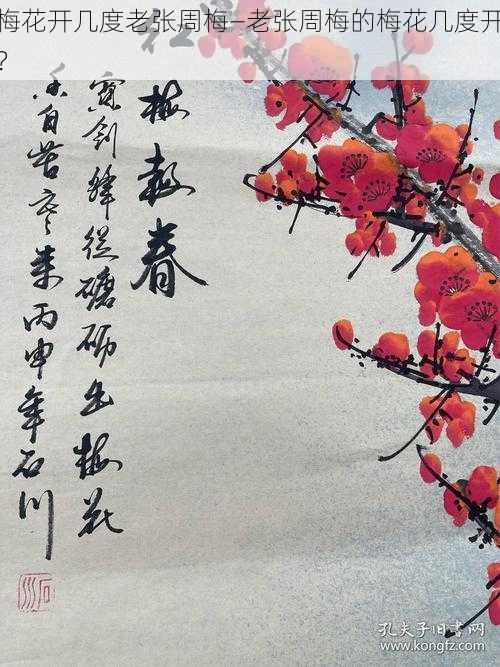 梅花开几度老张周梅—老张周梅的梅花几度开
?
红梅报春
宝剑锋從磨砺出梅花
香自苦寒来丙申年石川
石川
孔夫子旧书网
www.kongfz.com